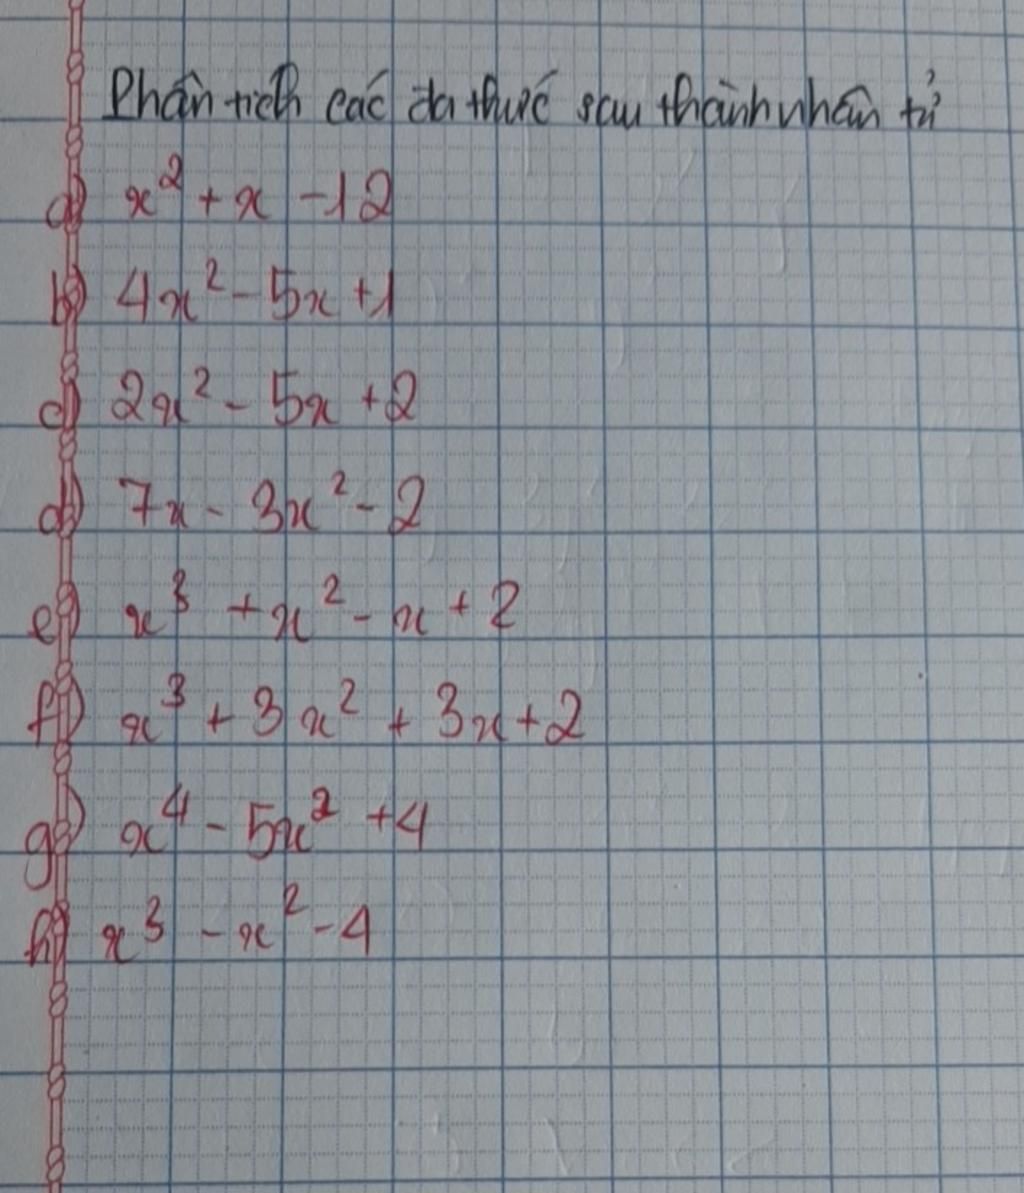 Phân tích các đa thức sau thành nhân tử
a) x² + x - 12
b) 4x² - 5x + 1
c) 2x² - 5x + 2
d) 7x - 3x² - 2
e) x³ + x² - x + 2
f) x³ + 3x² + 3x + 2
g) x⁴ - 5x² + 4
h) x³ - x² - 4